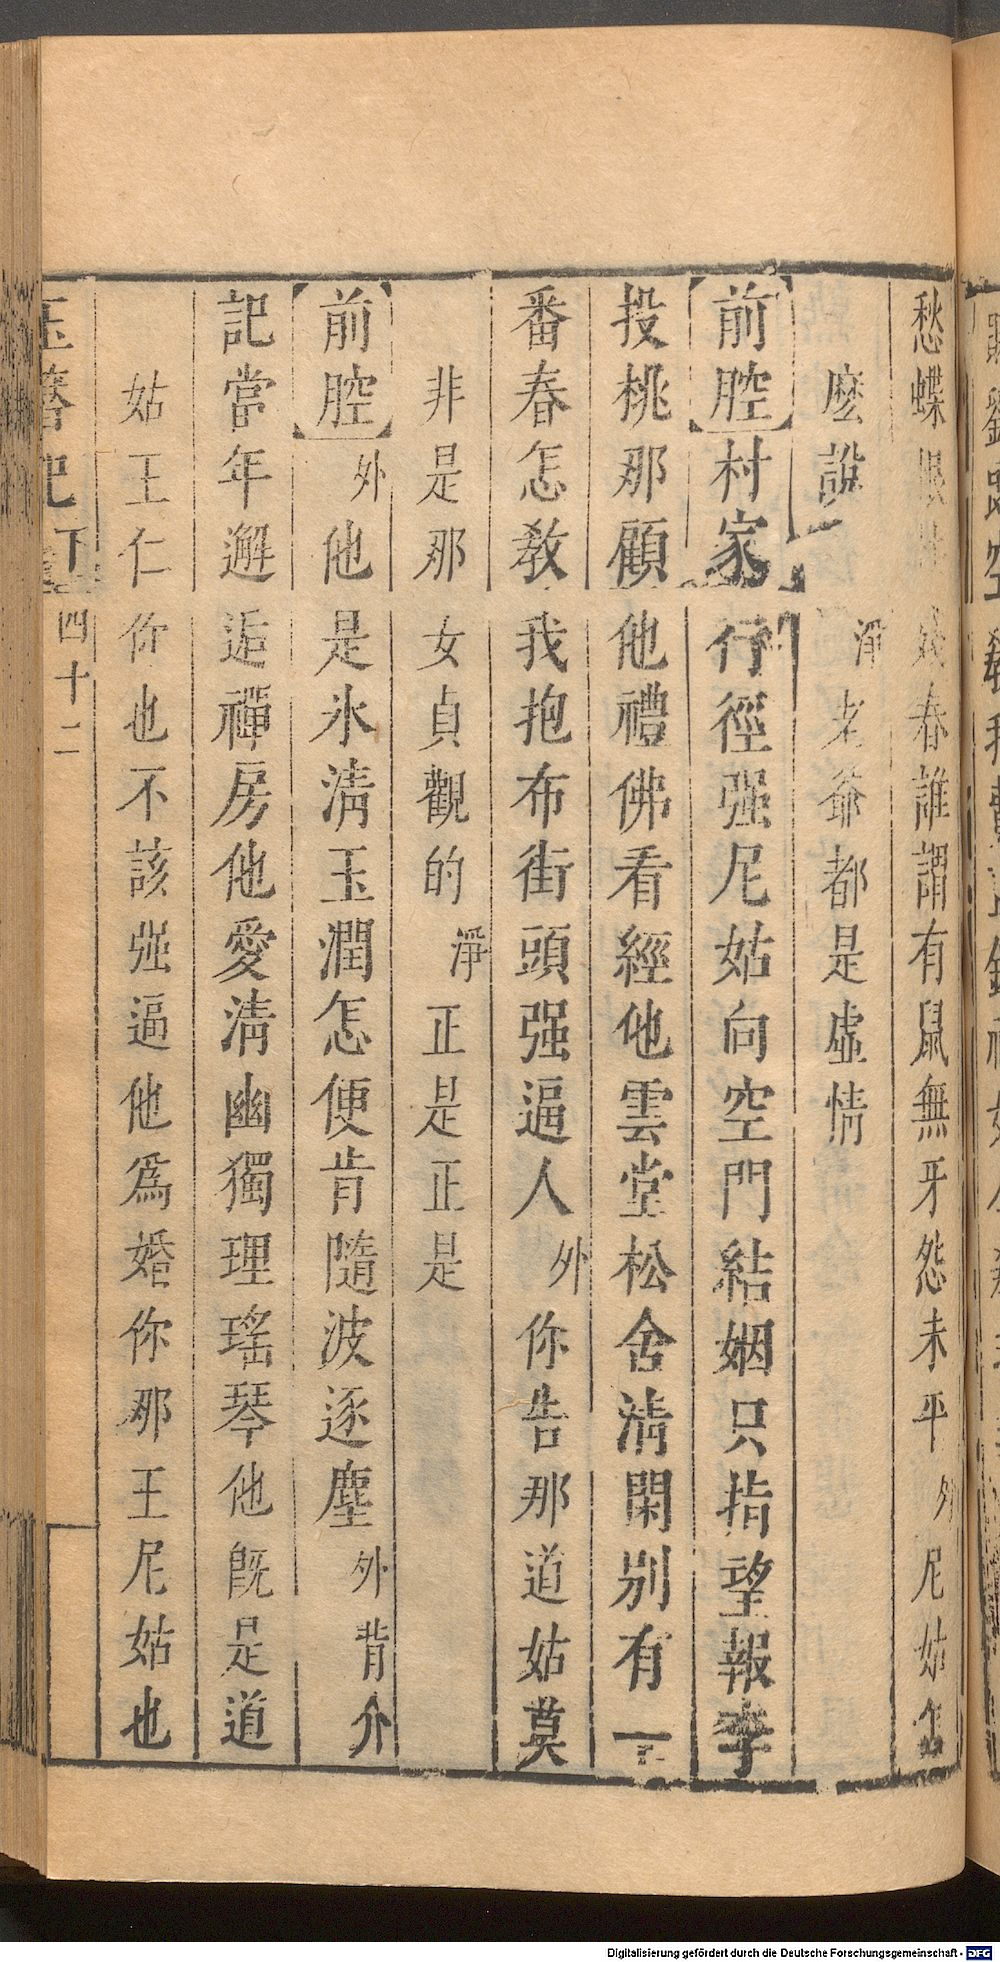 愁蝶
春誰謂有鼠無牙怨未平外尼姑怎
麽說淨老爺都是虛情
【前腔】村家行徑强尼姑向空門結姻只指望報李
投桃那顧他禮佛看經他雲堂松舍清閑別有一
番春怎教我抱布街頭强逼人外你告那道姑莫
非是那女貞觀的淨正是正是
【前腔】外他是氷清玉潤怎便肯隨波逐塵外背介
記當年邂逅禪房他愛清幽獨理瑤琴他旣是道
姑王仁你也不該强逼他爲婚你那王尼姑也
玉簪記下
四十二
Digitalisierung gefördert durch die Deutsche Forschungsgemeinschaft - DFG